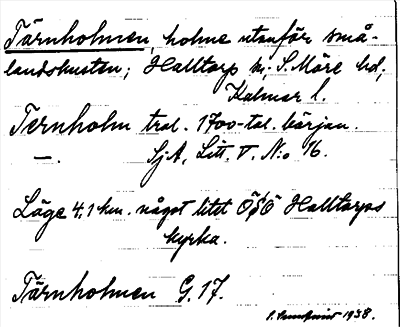 Tärnholmen, holme utanför små-
landskusten; Halltorp sn, S. Möre hd,
Kalmar l.
Ternholm tral. 1700-tal. början.
—. SjA, Litt. V. N:o 16.
Läge 4,1 km. något litet ÖSÖ Halltorps
kyrka.
Tärnholmen G. 17.
1938.